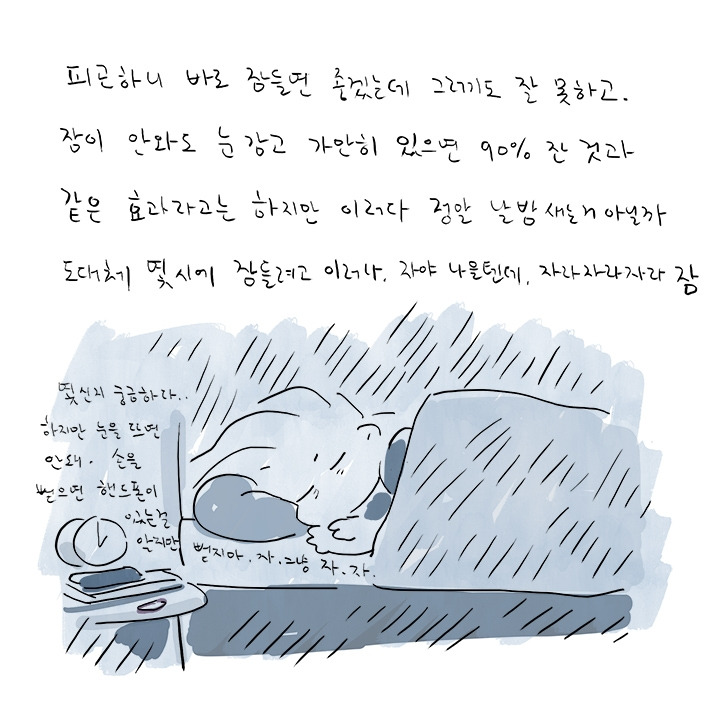 피곤하니 바로 잠들면 좋겠는데 그러기도 잘 못하고.
잠이 안와도 눈 감고 가만히 있으면 90% 잔 것과
같은 효과라고는 하지만 이러다 정말 날밤 새는거 아닐까
도대체 몇시에 잠들려고 이러나, 자야 나을텐데, 자라자라자라 잠
몇신지 궁금하다..
하지만 눈을 뜨면
안돼. 손을
뻗으면 핸드폰이
있는걸
알지만
뻗지마. 자. 그냥 자. 자.